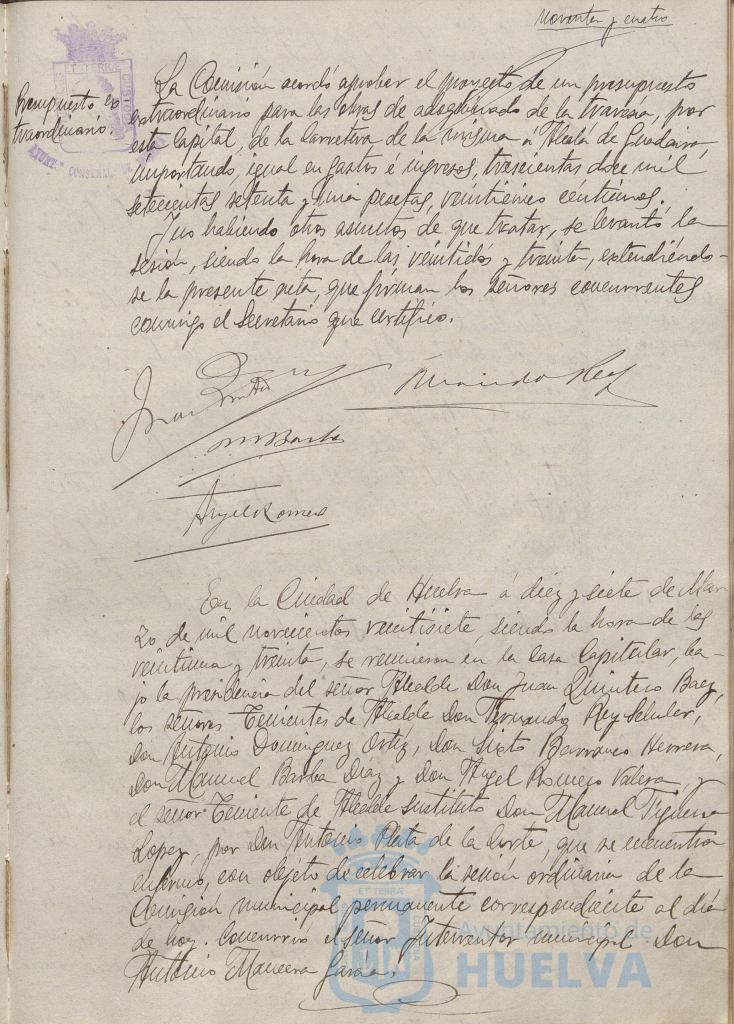 noventa y cuatro
Presupuesto ex-
traordinario.
La Comisión acordó aprobar el proyecto de un presupuesto
extraordinario para las obras de adoquinado de la travesía, por
esta Capital, de la Carretera de la misma a Alcalá de Guadaira,
importando, igual en gastos é ingresos, trescientas doce mil
setecientas setenta y una pesetas, veinticinco céntimos.
Y no habiendo otros asuntos de que tratar, se levantó la
sesión, siendo la hora de las veintidós y treinta, extendiéndo-
se la presente acta, que firman los señores concurrentes
conmigo el Secretario que certifico.
Juan Quintero
Fernando Rey
M Barba
Angel Romero
En la Ciudad de Huelva á diez y siete de Mar-
zo de mil novecientos veintisiete, siendo la hora de las
veintiuna y treinta, se reunieron en la Casa Capitular, ba-
jo la presidencia del señor Alcalde Don Juan Quintero Baez,
los señores Tenientes de Alcalde Don Fernando Rey
Don Antonio Dominguez Ortiz, Don Sixto Barranco Herrera,
Don Manuel Barba Diaz y Don Angel Romero Valera, y
el señor Teniente de Alcalde sustituto Don Manuel Figueroa
Lopez, por Don Antonio Plata de la Corte, que se encuentra
enfermo, con objeto de celebrar la sesión ordinaria de la
Comisión municipal permanente correspondiente al día
de hoy. Concurrió el señor Interventor municipal Don
Antonio Mancera García.
ET TERRÆ
Ayuntamiento de
HUELVA